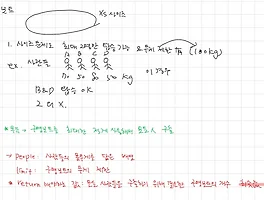 보트
XS 사이즈
1. 사이즈문제로 최대 2명만 탑승 가능 & 무게 제한 有 (100kg)
A B C D
ex. 사람들
70 50 80 50 kg
B&D 탑승 OK
2명 X.
* 목표 → 구명보트를 최대한 적게 사용해서 모든 人 구출
→ people : 사람들의 몸무게를 담은 배열
limit : 구명보트의 무게 제한
* return 해야하는 값 : 모든 사람들을 구출하기 위해 필요한 구명보트의 개수